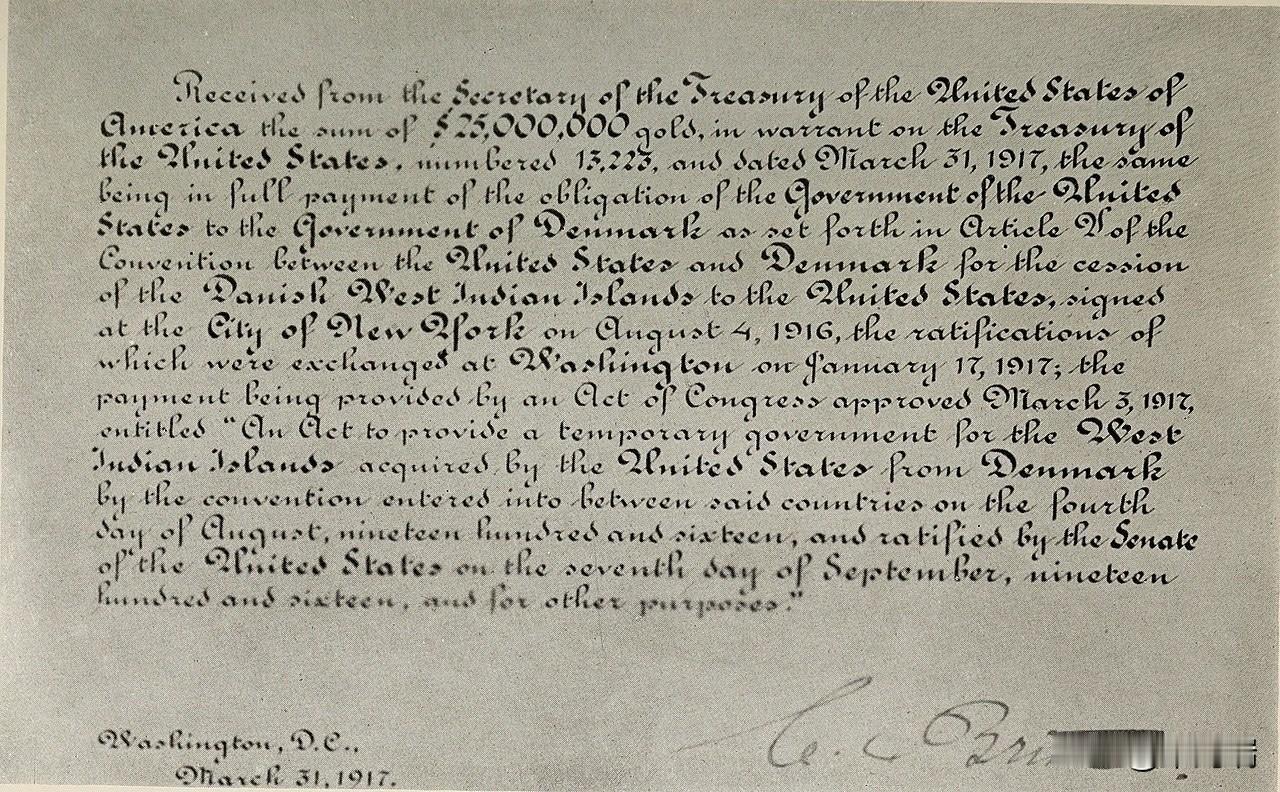 Received from the Secretary of the Treasury of the United States of
America the sum of $25,000,000 gold, in warrant on the Treasury of
the United States, numbered 13,223, and dated March 31, 1917, the same
being in full payment of the obligation of the Government of the United
States to the Government of Denmark as set forth in Article V of the
Convention between the United States and Denmark for the cession
of the Danish West Indian Islands to the United States, signed
at the City of New York on August 4, 1916, the ratifications of
which were exchanged at Washington on January 17, 1917; the
payment being provided by an Act of Congress approved March 3, 1917,
entitled "An Act to provide a temporary government for the West
Indian Islands acquired by the United States from Denmark
by the convention entered into between said countries on the fourth
day of August, nineteen hundred and sixteen, and ratified by the Senate
of the United States on the seventh day of September, nineteen
hundred and sixteen, and for other purposes."
C.
Washington, D.C.,
March 31, 1917.